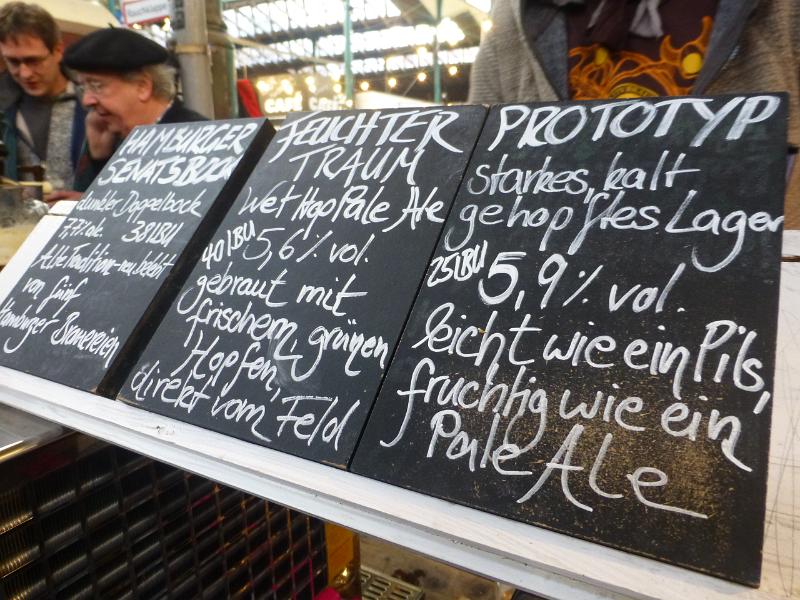 HAMBURGER
SENATSBOCK
dunkler Doppelbock
7,7% vol. 38 IBU
Alte Tradition - neu belebt
von fünf
Hamburger Brauereien
FEUCHTER
TRAUM
Wet Hop Pale Ale
40 IBU 5,6% vol.
gebraut mit
frischem, grünen
Hopfen,
direkt vom Feld
PROTOTYP
starkes, kalt
gehopftes Lager
25 IBU 5,9% vol.
leicht wie ein Pils,
fruchtig wie ein
Pale Ale
CAFÉ